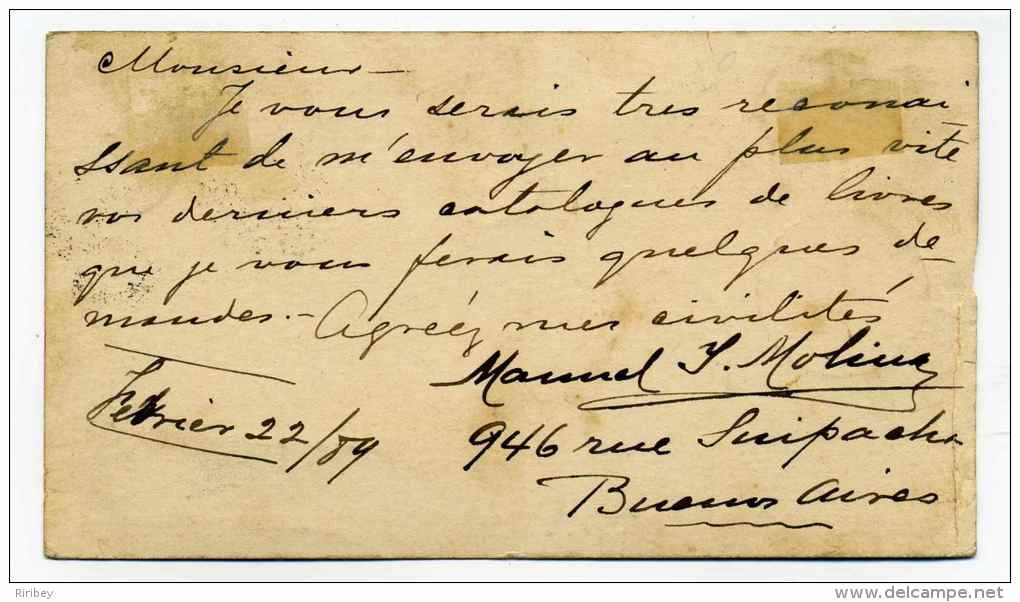 Monsieur —
Je vous serais tres reconai
ssant de m'envoyer au plus vite
vos derniers catalogues de livres
que je vous ferais quelques de-
mandes. — Agréez mes civilités
Manuel Y. Molina
Fevrier 22/89
946 rue Suipacha
Buenos Aires
Riribey
www.delcampe.net